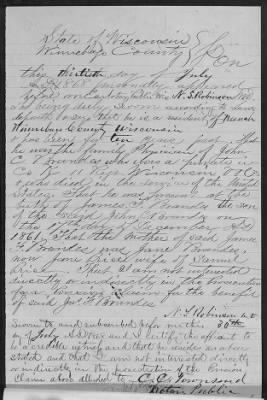 State of Wisconsin }
Winnebago County } On
this thirtieth day of July
AD 1868 personally appeared
before me N. S. Robinson M.D.
who being duly sworn according to law
deposeth & says that he is a resident of Neenah
Winnebago County Wisconsin
& has been for ten years past that
he was the family Physician of John
C. Brundes who was a private in
Co K 11 Regt Wisconsin Vols
& who died in the service of the United
States. That he was present at the
birth of James F. Brundes the son
of the said John C. Brundes on
the day of December AD
1861. That the mother of said James
F. Brundes was Jane Brundes,
now Jane Crisel wife of Samuel
Crisel. That I am not interested
directly or indirectly in the prosecution
for the benefit
of said Jas. F. Brundes
N. S. Robinson M.D.
Sworn to and subscribed before me this 30th
of July AD 1868 and I certify the affiant to
be a credible witness and that he resides as above
stated and that I am not interested directly
or indirectly in the prosecution of the Pension
Claim above alluded to C. C. Townsend
Notary Public